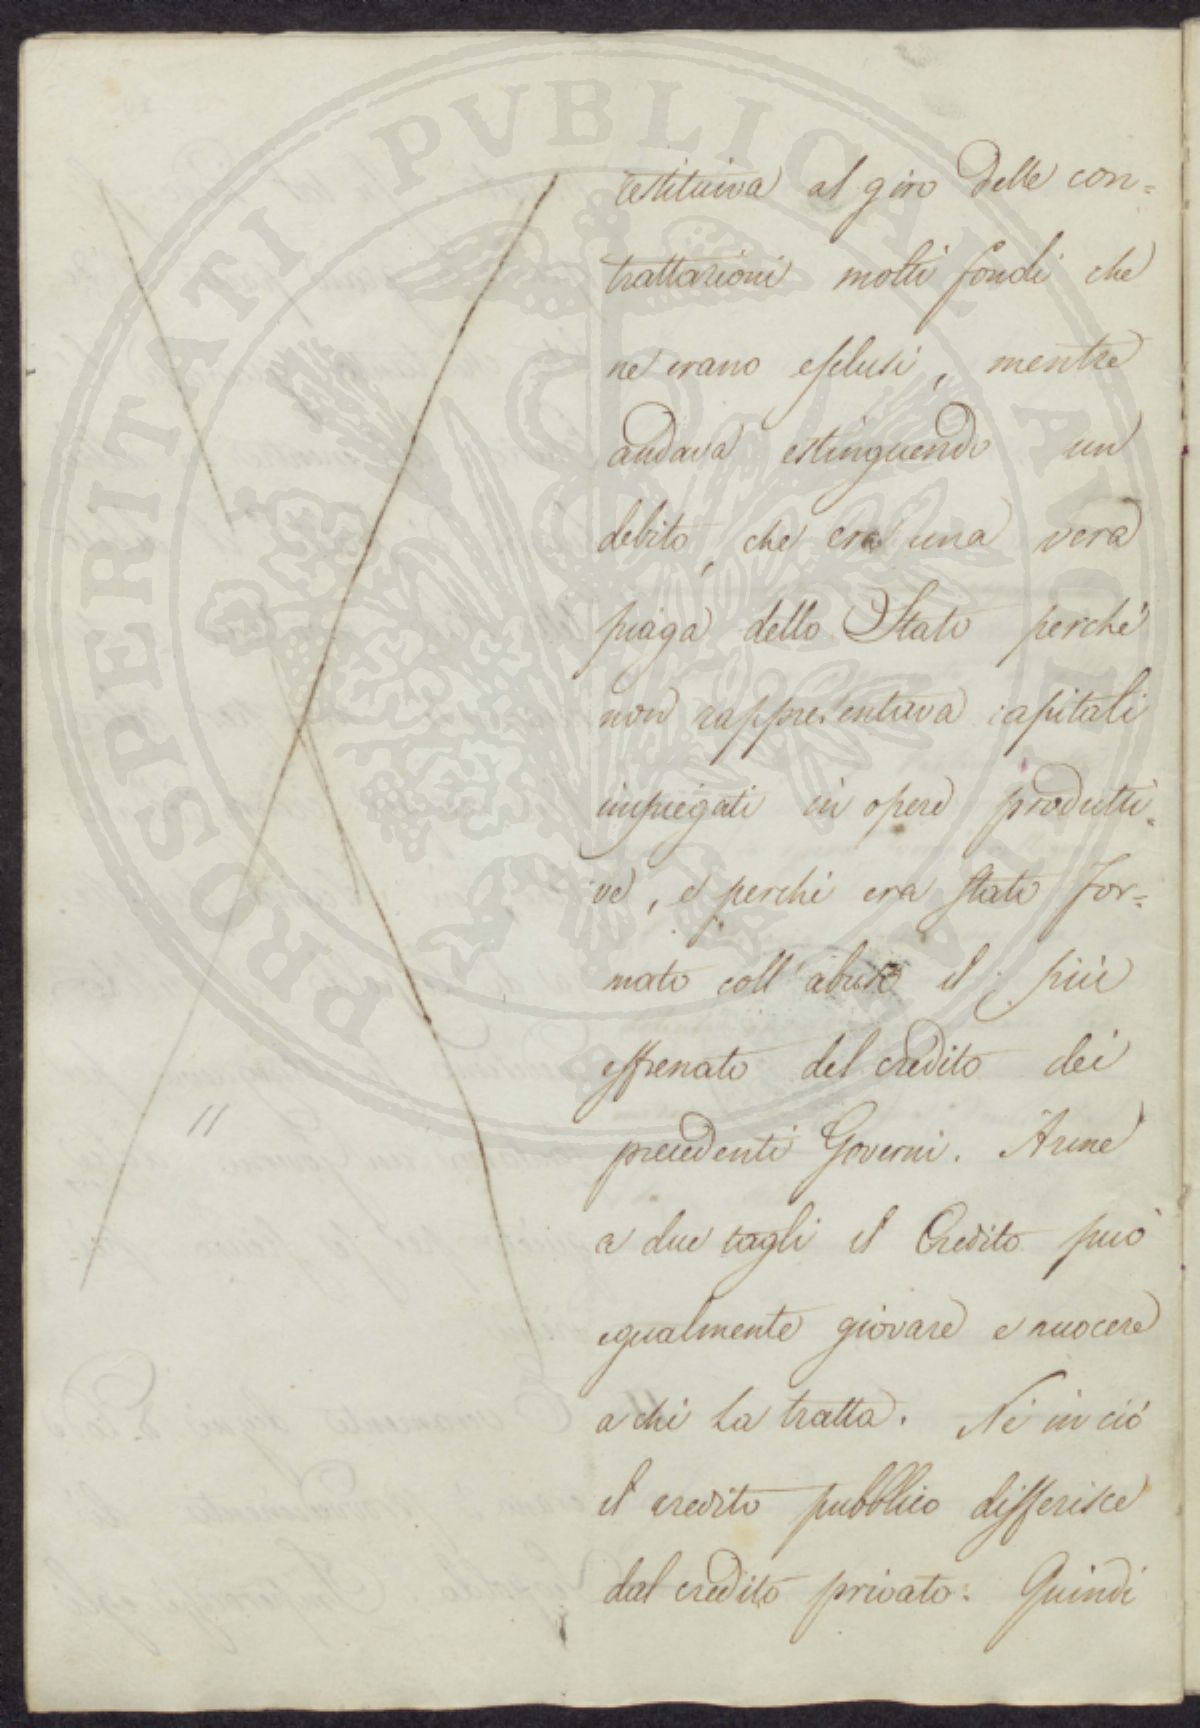 PROSPERITATI PVBLICAE AVGENDAE
restituiva al giro delle con=
trattazioni molti fondi che
ne erano esclusi, mentre
andava estinguendo un
debito, che era una vera
piaga dello Stato perchè
non rappresentava capitali
impiegati in opere produtti=
ve, e perchè era stato for=
mato coll'abuso il più
effrenato del credito dei
precedenti Governi. Arme
a due tagli il Credito può
egualmente giovare e nuocere
a chi la tratta. Nè in ciò
il credito pubblico differisce
dal credito privato: Quindi
//